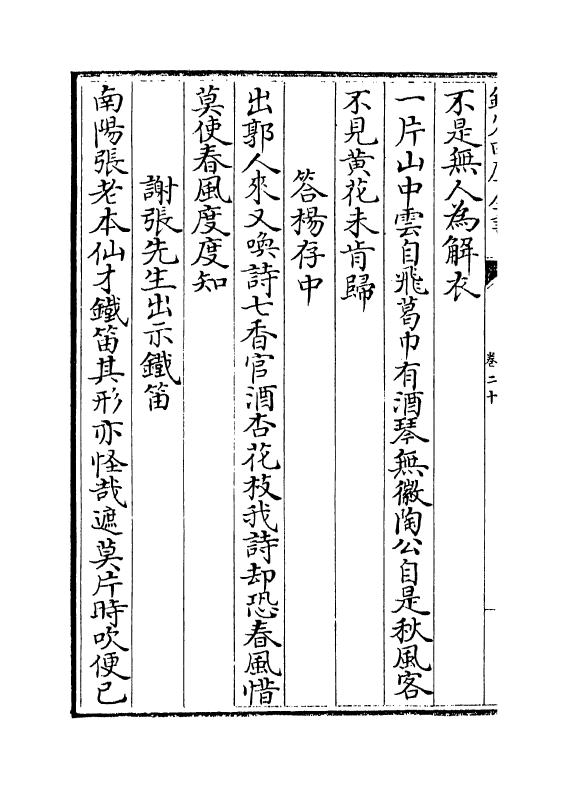 不是無人為解衣
一片山中雲自飛葛巾有酒琴無徽陶公自是秋風客
不見黄花未肯歸
答楊存中
出郭人來又喚詩七香官酒杏花枝我詩却恐春風惜
莫使春風度度知
謝張先生出示鐵笛
南陽張老本仙才鐵笛其形亦怪哉遮莫片時吹便已
卷二十